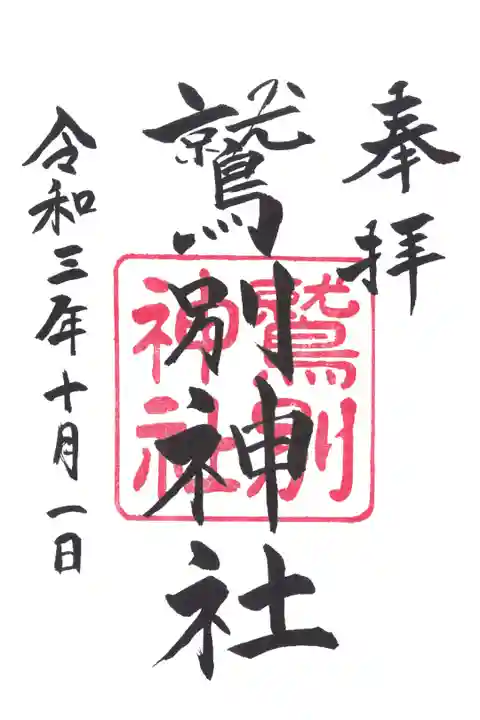 奉拝
鷲別神社
鷲別
神社
令和三年十月一日